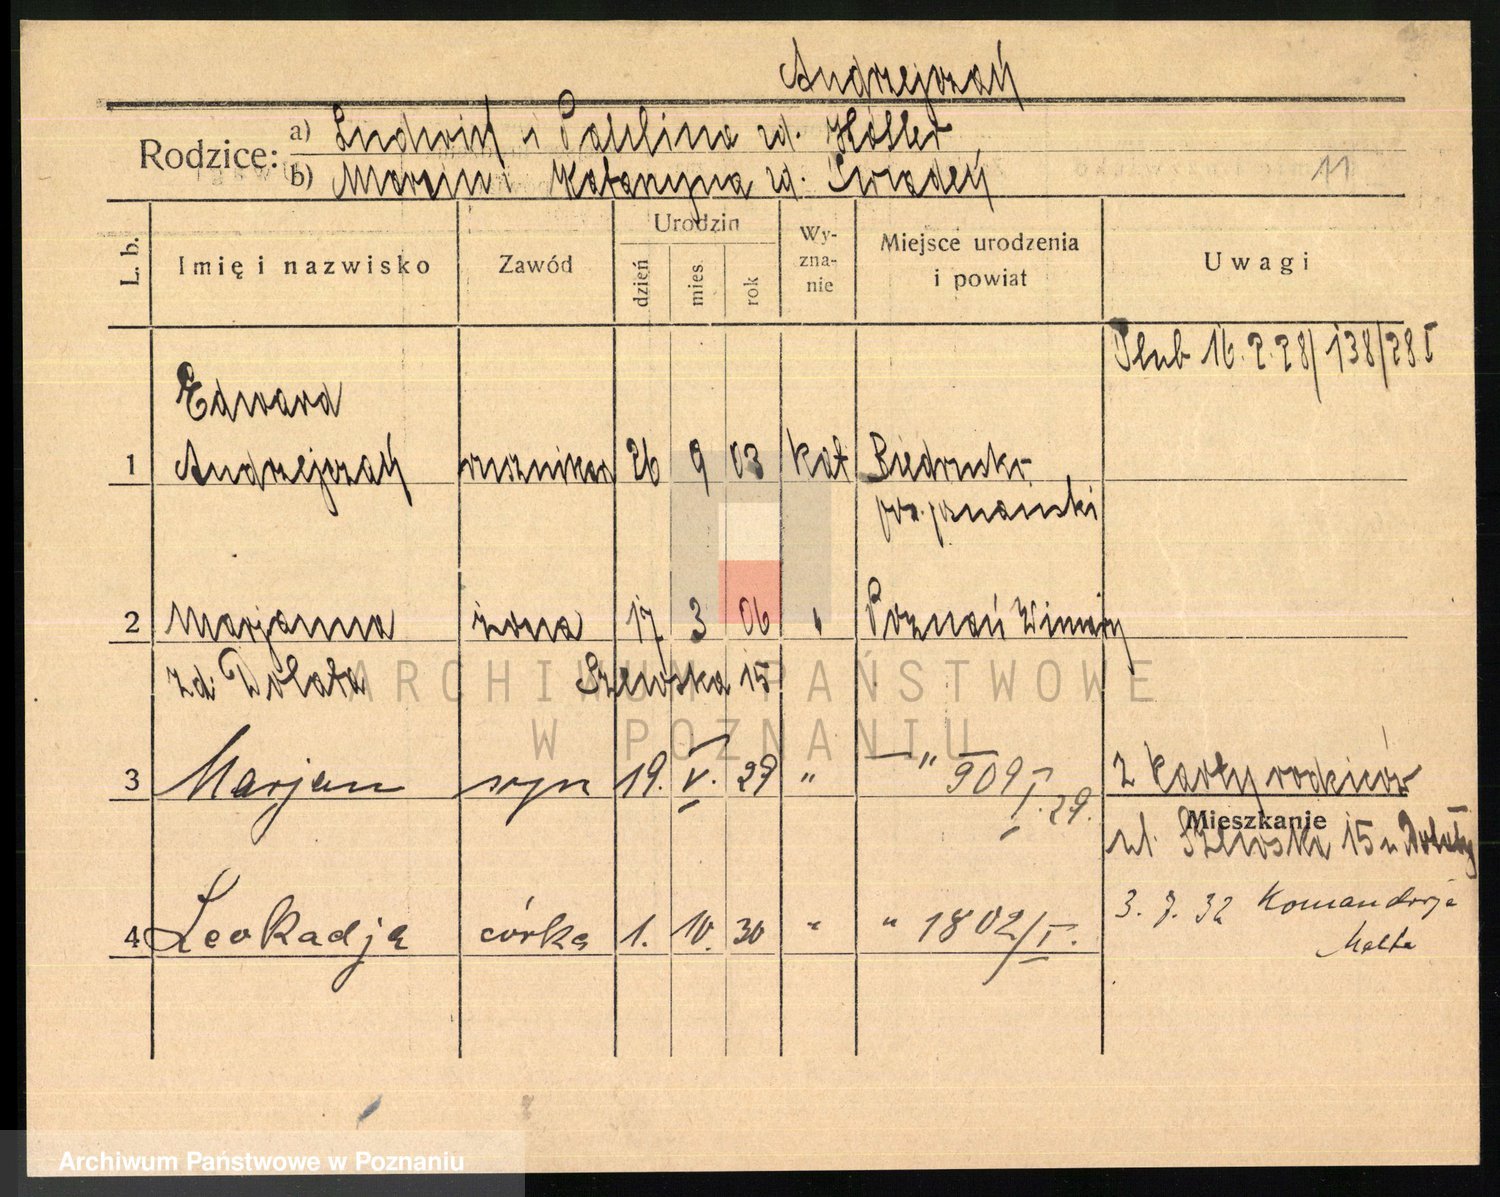 Andrzejczak
Rodzice:
a) Ludwik i Paulina zd. Höller
b) Marcin i Katarzyna zd. Świadek
11
L. b.
Imię i nazwisko
Zawód
Urodzin
dzień
mies
rok
Wy-
zna-
nie
Miejsce urodzenia
i powiat
Uwagi
Ślub 16.2.28/138/28 I
Edward
1 Andrzejczak rusznikarz 26 9 03 kat Biedrusko
pow. poznanski
2 Marjanna żona 17 3 06 " Poznań Winiary
zd. Dolata Szewska 15
3 Marjan syn 19. V. 29 " — " — 909 I
I. 29.
2 karty rodziców
Mieszkanie
ul. Szewska 15 u Dolaty
4 Leokadja córka 1. 10. 30 " " 1802/I.
3. 7. 32 Komandorja
Malta
ARCHIWUM PAŃSTWOWE
W POZNANIU
Archiwum Państwowe w Poznaniu